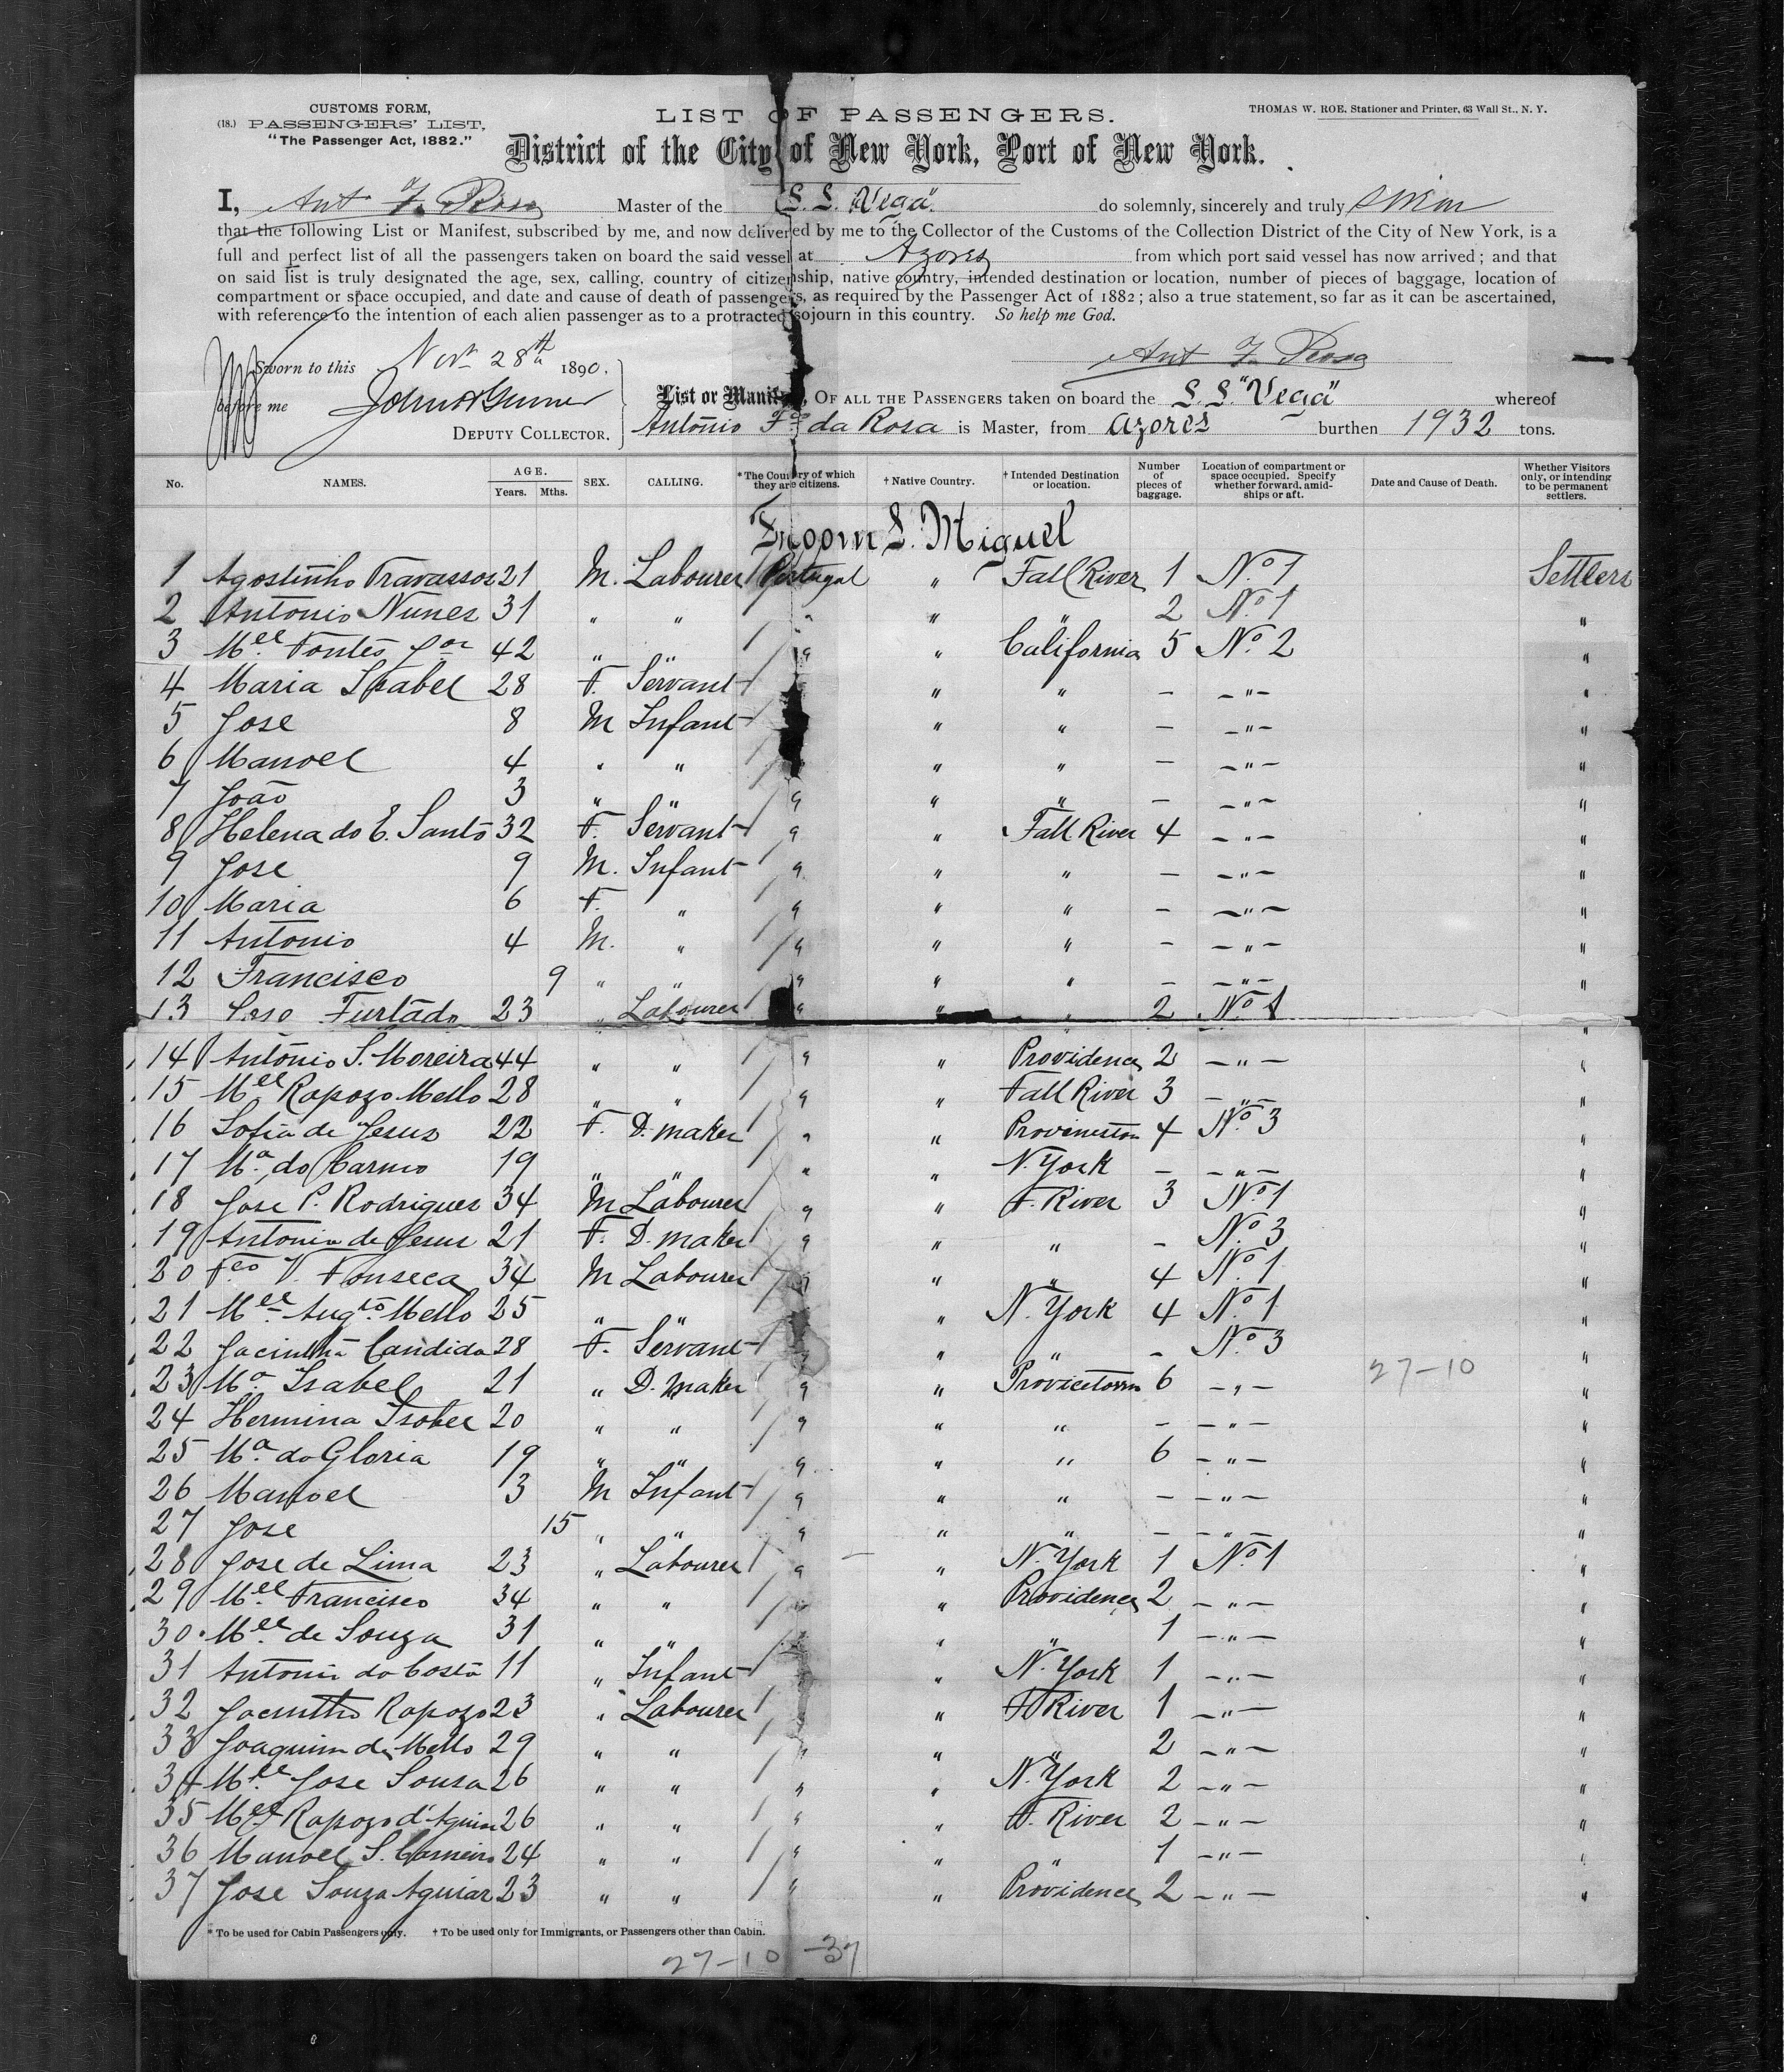 CUSTOMS FORM,
(18.) PASSENGERS' LIST,
"The Passenger Act, 1882."
LIST OF PASSENGERS.
THOMAS W. ROE, Stationer and Printer, 63 Wall St., N. Y.
District of the City of New York, Port of New York.
I, Ant F. Rosa Master of the S. S. Vega" do solemnly, sincerely and truly swear
that the following List or Manifest, subscribed by me, and now delivered by me to the Collector of the Customs of the Collection District of the City of New York, is a
full and perfect list of all the passengers taken on board the said vessel at Azores from which port said vessel has now arrived; and that
on said list is truly designated the age, sex, calling, country of citizenship, native country, intended destination or location, number of pieces of baggage, location of
compartment or space occupied, and date and cause of death of passengers, as required by the Passenger Act of 1882; also a true statement, so far as it can be ascertained,
with reference to the intention of each alien passenger as to a protracted sojourn in this country. So help me God.
Ant F. Rosa
Sworn to this Nov 28th 1890.
before me
DEPUTY COLLECTOR.
List or Manifest, OF ALL THE PASSENGERS taken on board the S. S. "Vega" whereof
Antonio Fco da Rosa is Master, from Azores burthen 1932 tons.
No. NAMES. AGE. Years. Mths. SEX. CALLING. *The Country of which they are citizens. †Native Country. †Intended Destination or location. Number of pieces of baggage. Location of compartment or space occupied. Specify whether forward, amidships or aft. Date and Cause of Death. Whether Visitors only, or intending to be permanent settlers.
Froom S. Miguel
1 Agostinho Travassos 21 M. Labourer Portugal " Fall River 1 No. 1 Settlers
2 Antonio Nunes 31 " " " " " 2 No. 1 "
3 Mel Fontes 42 " " " " California 5 No. 2 "
4 Maria Isabel 28 F. Servant " " — — " — "
5 Jose 8 M Infant " " — — " — "
6 Manoel 4 " " " " — — " — "
7 João 3 " " " " " — — " — "
8 Helena do E. Santo 32 F. Servant " " Fall River 4 — " — "
9 Jose 9 M. Infant " " " — — " — "
10 Maria 6 F. " " " " — — " — "
11 Antonio 4 M. " " " " — — " — "
12 Francisco 9 " " " " " — — " — "
13 Jose Furtado 23 " Labourer " " " 2 No. 1 "
14 Antonio S. Moreira 44 " " " " Providence 2 — " — "
15 Mel Rapozo Mello 28 " " " " Fall River 3 — " — "
16 Sofia de Jesus 22 F. D. maker " " 4 No. 3 "
17 Ma. do Carmo 19 " " " " N. York — — " — "
18 Jose P. Rodrigues 34 M Labourer " " F. River 3 No. 1 "
19 Antonia de Jesus 21 F. D. maker " " " - No. 3 "
20 Fco V. Fonseca 34 M Labourer " " " 4 No. 1 "
21 Mel Augto Mello 25 " " " " N. York 4 No. 1 "
22 Jacintha Candida 28 F. Servant " " " - No. 3 "
23 Ma. Isabel 21 " D. Maker " " Provicetown 6 — " — 27-10 "
24 Hermina Isabel 20 " " " " " — — " — "
25 Ma. da Gloria 19 " " " " " 6 — " — "
26 Manoel 3 M Infant " " " — — " — "
27 Jose 15 " " " " " — — " — "
28 Jose de Lima 23 " Labourer " " N. York 1 No. 1 "
29 Mel Francisco 34 " " " " Providence 2 — " — "
30 Mel de Souza 31 " " " " 1 — " — "
31 Antonio da Costa 11 " Infant " N. York 1 — " — "
32 Jacintho Rapozo 23 " Labourer " F. River 1 — " — "
33 Joaquim de Mello 29 " " " " " 2 — " — "
34 Mel Jose Sousa 26 " " " " N. York 2 — " — "
35 Mel Rapozo d'Aguiar 26 " " " " F. River 2 — " — "
36 Manoel S. Carneiro 24 " " " " " 1 — " — "
37 Jose Souza Aguiar 23 " " " " Providence 2 — " — "
* To be used for Cabin Passengers only. † To be used only for Immigrants, or Passengers other than Cabin.
27-10 -37